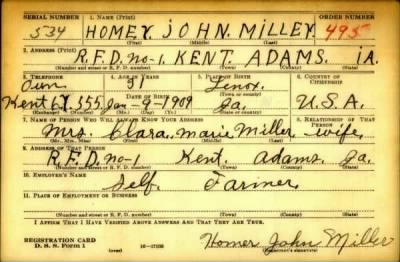 SERIAL NUMBER 1. NAME (Print) ORDER NUMBER
534 HOMEY. JOHN. MILLEY 495
(First) (Middle) (Last)
2. ADDRESS (Print)
R.F.D. No-1. KENT ADAMS. IA.
(Number and street or R. F. D. number) (Town) (County) (State)
3. TELEPHONE 4. AGE IN YEARS 5. PLACE OF BIRTH 6. COUNTRY OF CITIZENSHIP
Own 31 Lenox.
DATE OF BIRTH (Town or county)
Kent 6Y 355 Jan-9-1909 Ia. U.S.A.
(Exchange) (Number) (Mo.) (Day) (Yr.) (State or country)
7. NAME OF PERSON WHO WILL ALWAYS KNOW YOUR ADDRESS 8. RELATIONSHIP OF THAT PERSON
Mrs. Clara. marie Miller. wife.
(Mr., Mrs., Miss) (First) (Middle) (Last)
9. ADDRESS OF THAT PERSON
R.F.D. no-1 Kent. adams. Ia.
(Number and street or R. F. D. number) (Town) (County) (State)
10. EMPLOYER'S NAME
Self. Farmer.
11. PLACE OF EMPLOYMENT OR BUSINESS
(Number and street or R. F. D. number) (Town) (County) (State)
I AFFIRM THAT I HAVE VERIFIED ABOVE ANSWERS AND THAT THEY ARE TRUE.
REGISTRATION CARD
D. S. S. Form 1 16-17105 Homer John Miller
(Registrant's signature)